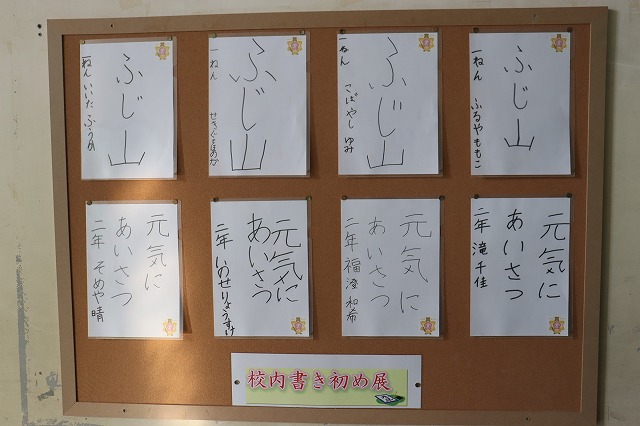 ふじ山
一ねん いいだ ふうか
ふじ山
一ねん
せきぐちほのか
ふじ山
一ねん こばやし ゆみ
ふじ山
一ねん ふるや ももこ
元気に
あいさつ
二年 そめや 晴
元気に
あいさつ
二年 いのせりょうすけ
元気に
あいさつ
二年 福澄 和希
元気に
あいさつ
二年 滝 千佳
校内書き初め展